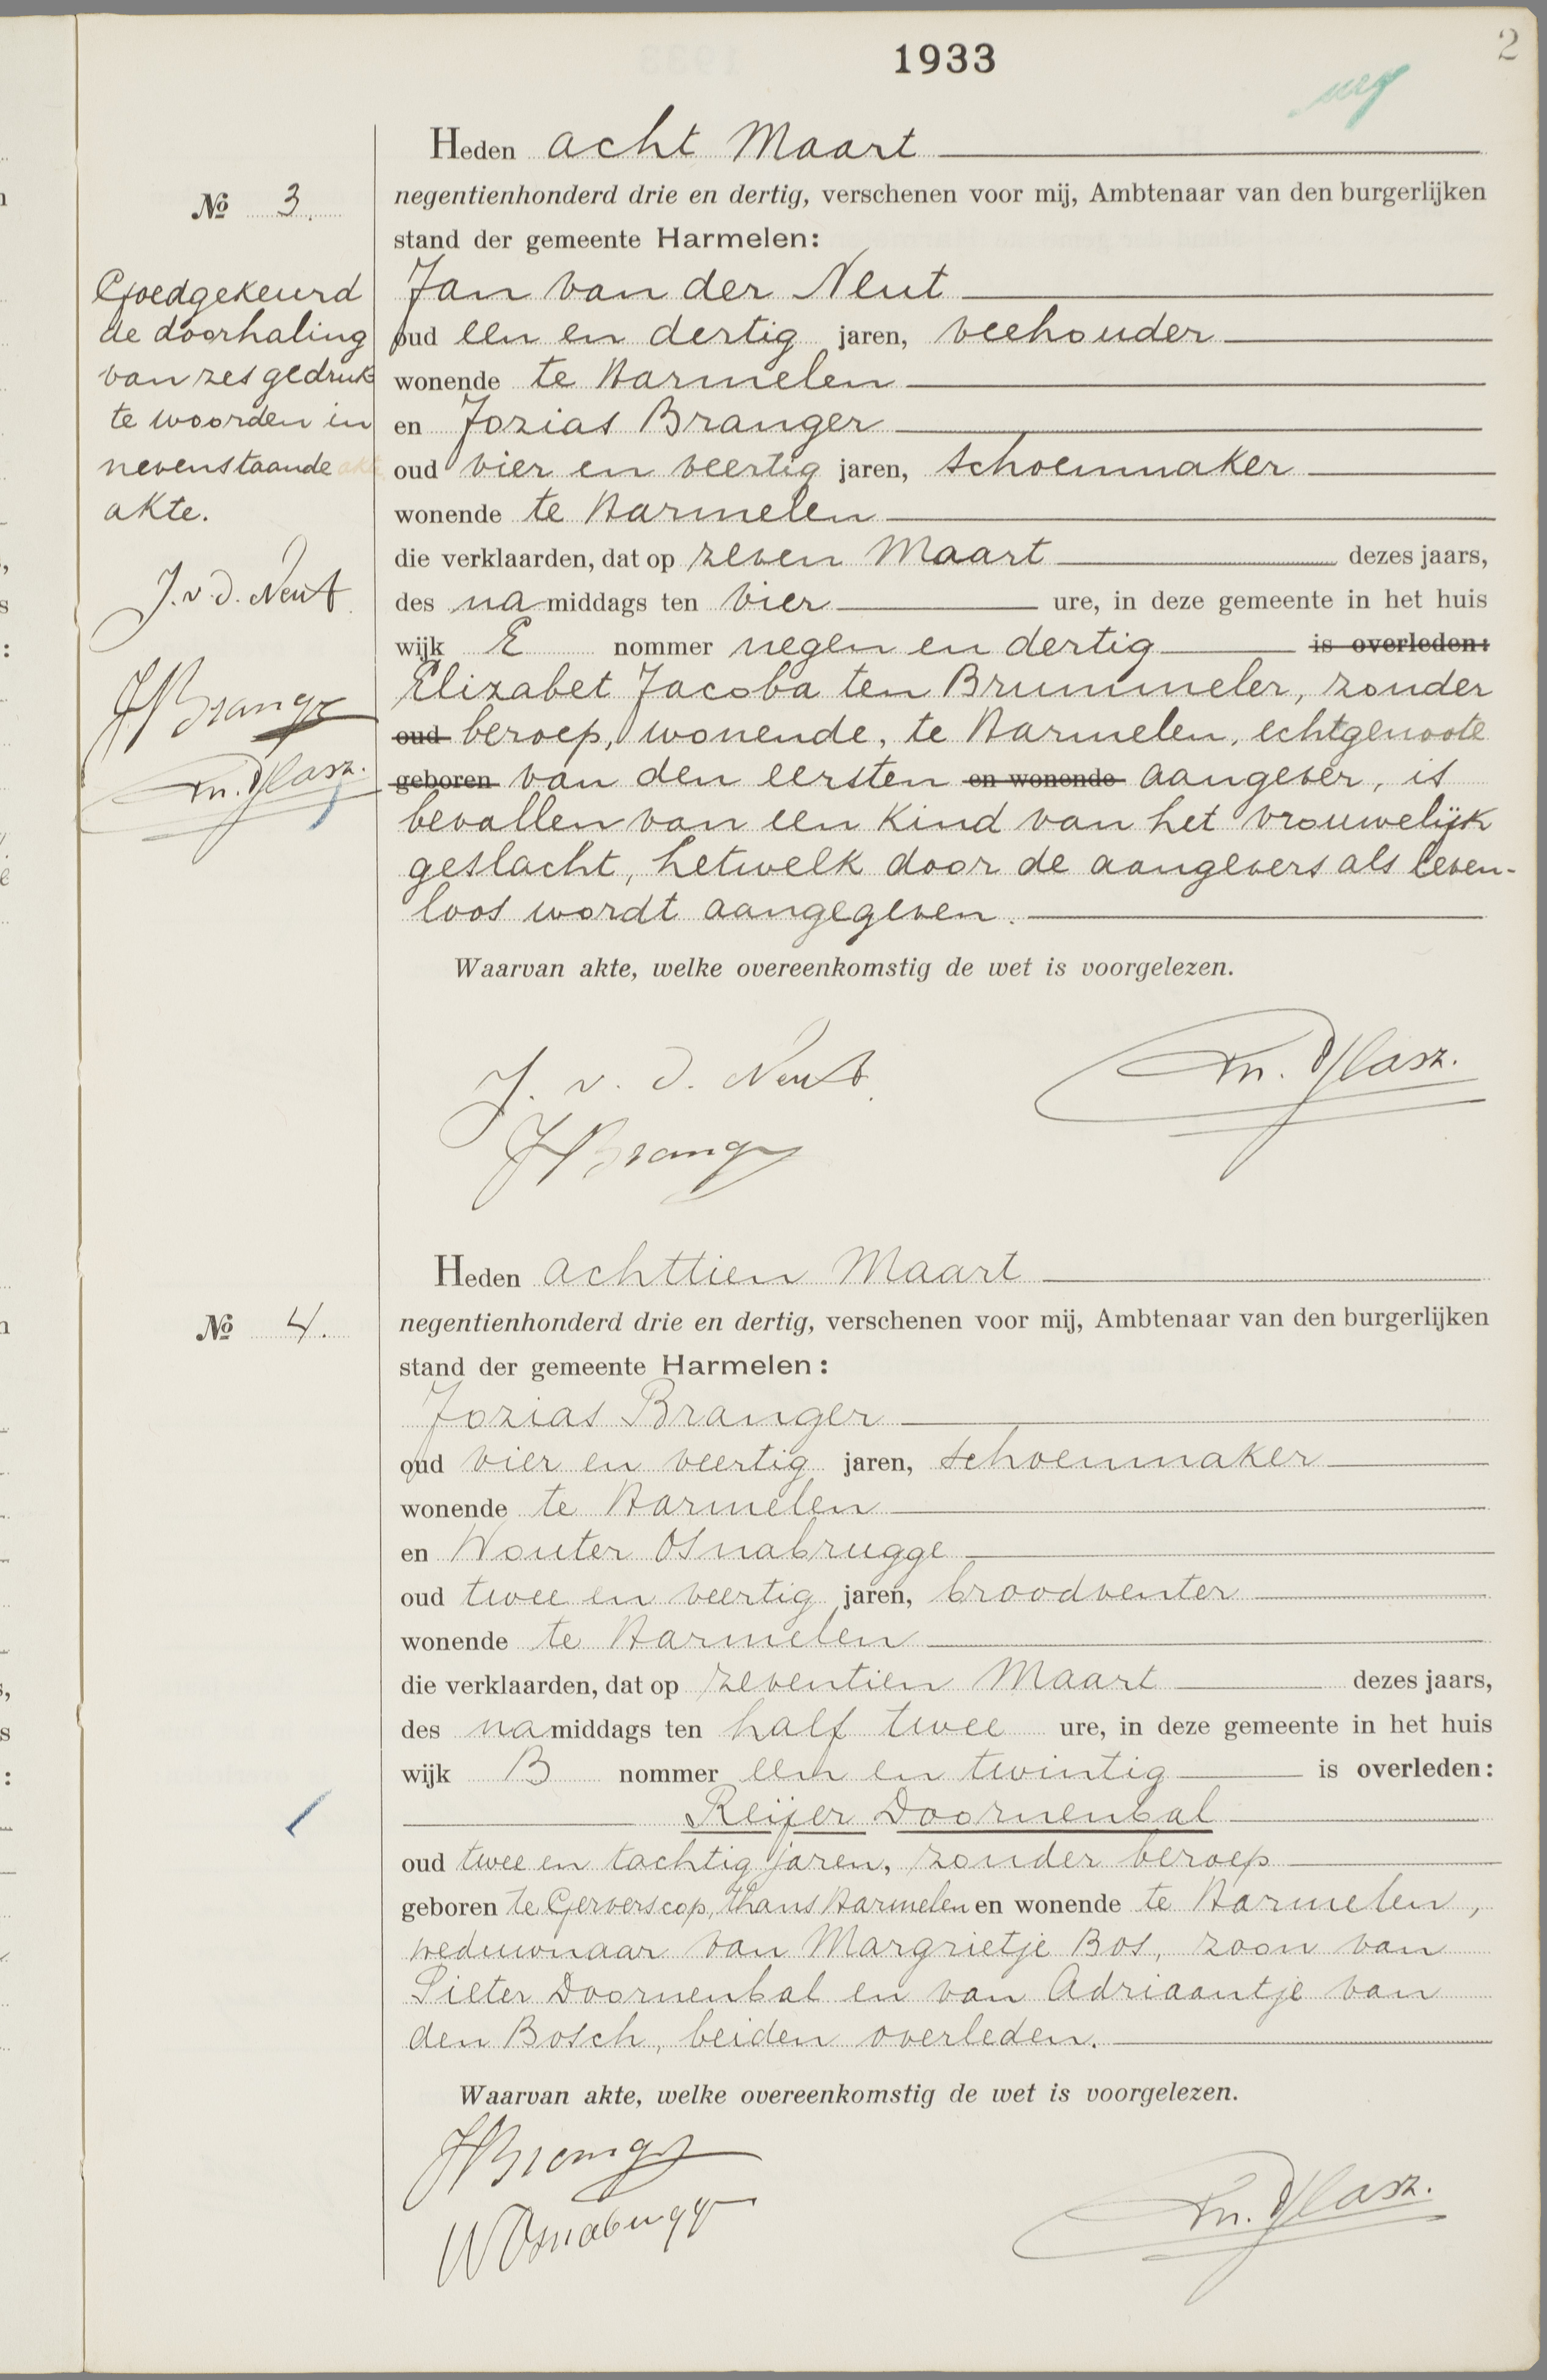 1933
2
Heden acht Maart
No 3.
negentienhonderd drie en dertig, verschenen voor mij, Ambtenaar van den burgerlijken
stand der gemeente Harmelen:
Jan van der Neut
oud een en dertig jaren, veehouder
wonende te Harmelen
en Jozias Branger
oud vier en veertig jaren, schoenmaker
wonende te Harmelen
die verklaarden, dat op zeven Maart dezes jaars,
des namiddags ten vier ure, in deze gemeente in het huis
wijk E nommer negen en dertig is overleden:
Elizabet Jacoba ten Brummeler, zonder
oud beroep, wonende, te Harmelen, echtgenoote
geboren van den eersten en wonende aangever, is
bevallen van een kind van het vrouwelijk
geslacht, hetwelk door de aangevers als leven-
loos wordt aangegeven.
Goedgekeurd
de doorhaling
van zes gedruk
te woorden in
nevenstaande
akte.
J. v. d. Neut
JBranger
Waarvan akte, welke overeenkomstig de wet is voorgelezen.
J. v. d. Neut
JBranger
Heden achttien Maart
No 4.
negentienhonderd drie en dertig, verschenen voor mij, Ambtenaar van den burgerlijken
stand der gemeente Harmelen:
Jozias Branger
oud vier en veertig jaren, schoenmaker
wonende te Harmelen
en Wouter Osnabrugge
oud twee en veertig jaren, broodventer
wonende te Harmelen
die verklaarden, dat op zeventien Maart dezes jaars,
des namiddags ten half twee ure, in deze gemeente in het huis
wijk B nommer een en twintig is overleden:
Reijer Doornenbal
oud twee en tachtig jaren, zonder beroep
geboren te Gerverscop, thans Harmelen en wonende te Harmelen,
weduwnaar van Margrietje Bos, zoon van
Pieter Doornenbal en van Adriaantje van
den Bosch, beiden overleden.
Waarvan akte, welke overeenkomstig de wet is voorgelezen.
JBranger
WOsnabrugge